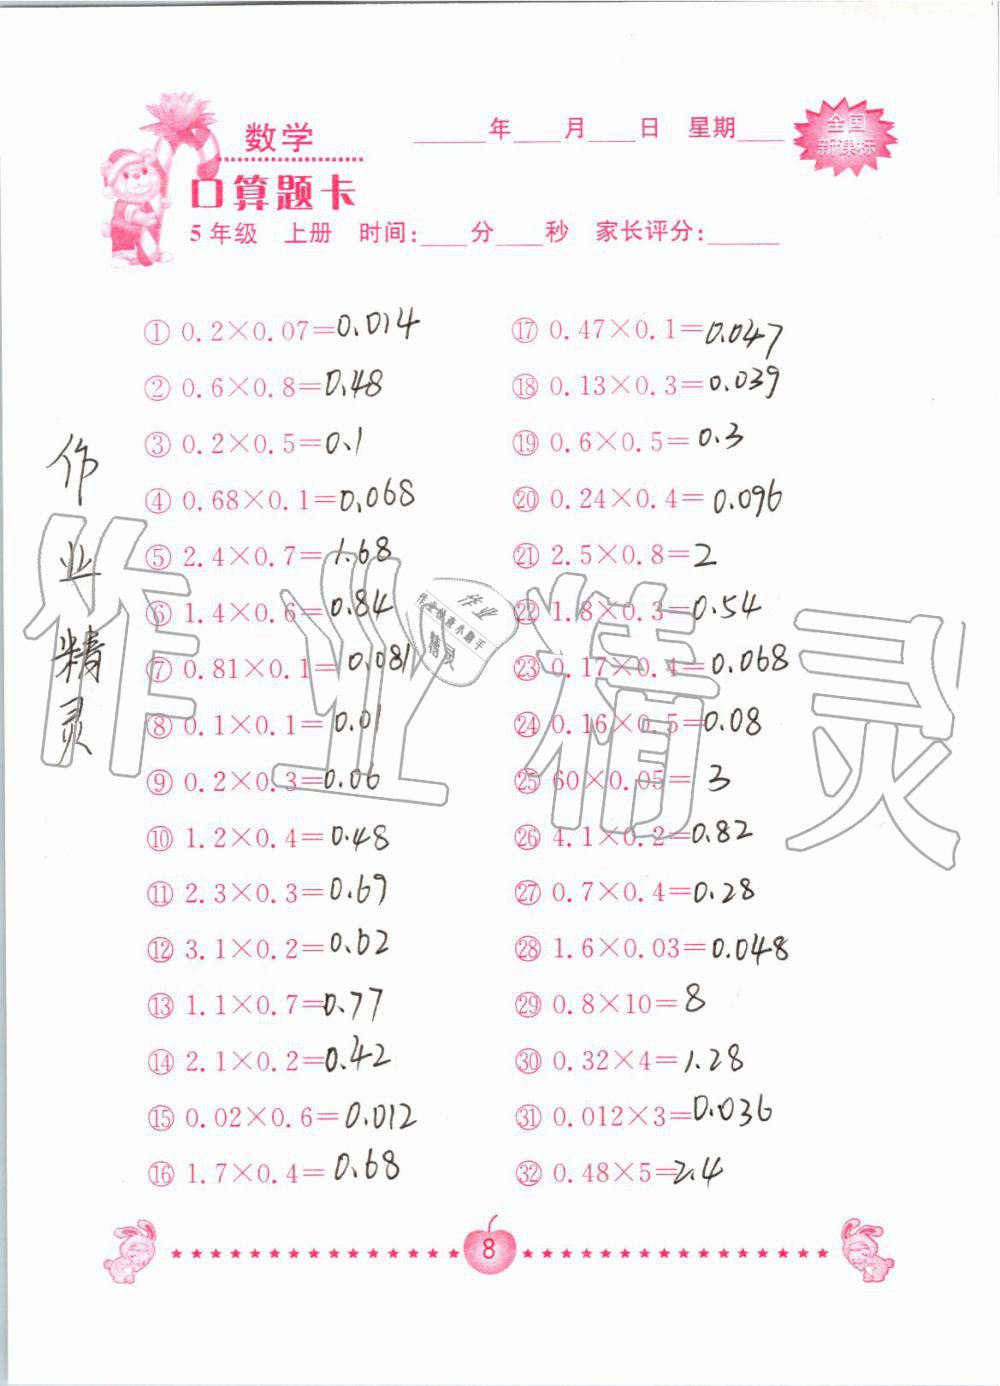 数学
____年____月____日 星期____
全国
新课标
口算题卡
5年级 上册 时间:____分____秒 家长评分:____
① 0.2×0.07=0.014
② 0.6×0.8=0.48
③ 0.2×0.5=0.1
④ 0.68×0.1=0.068
⑤ 2.4×0.7=1.68
⑥ 1.4×0.6=0.84
⑦ 0.81×0.1=0.081
⑧ 0.1×0.1=0.01
⑨ 0.2×0.3=0.06
⑩ 1.2×0.4=0.48
⑪ 2.3×0.3=0.69
⑫ 3.1×0.2=0.62
⑬ 1.1×0.7=0.77
⑭ 2.1×0.2=0.42
⑮ 0.02×0.6=0.012
⑯ 1.7×0.4=0.68
⑰ 0.47×0.1=0.047
⑱ 0.13×0.3=0.039
⑲ 0.6×0.5=0.3
⑳ 0.24×0.4=0.096
㉑ 2.5×0.8=2
㉒ 1.8×0.3=0.54
㉓ 0.17×0.4=0.068
㉔ 0.16×0.5=0.08
㉕ 60×0.05=3
㉖ 4.1×0.2=0.82
㉗ 0.7×0.4=0.28
㉘ 1.6×0.03=0.048
㉙ 0.8×10=8
㉚ 0.32×4=1.28
㉛ 0.012×3=0.036
㉜ 0.48×5=2.4
作业精灵
作业精灵
作业
作业检查小助手
精灵
8